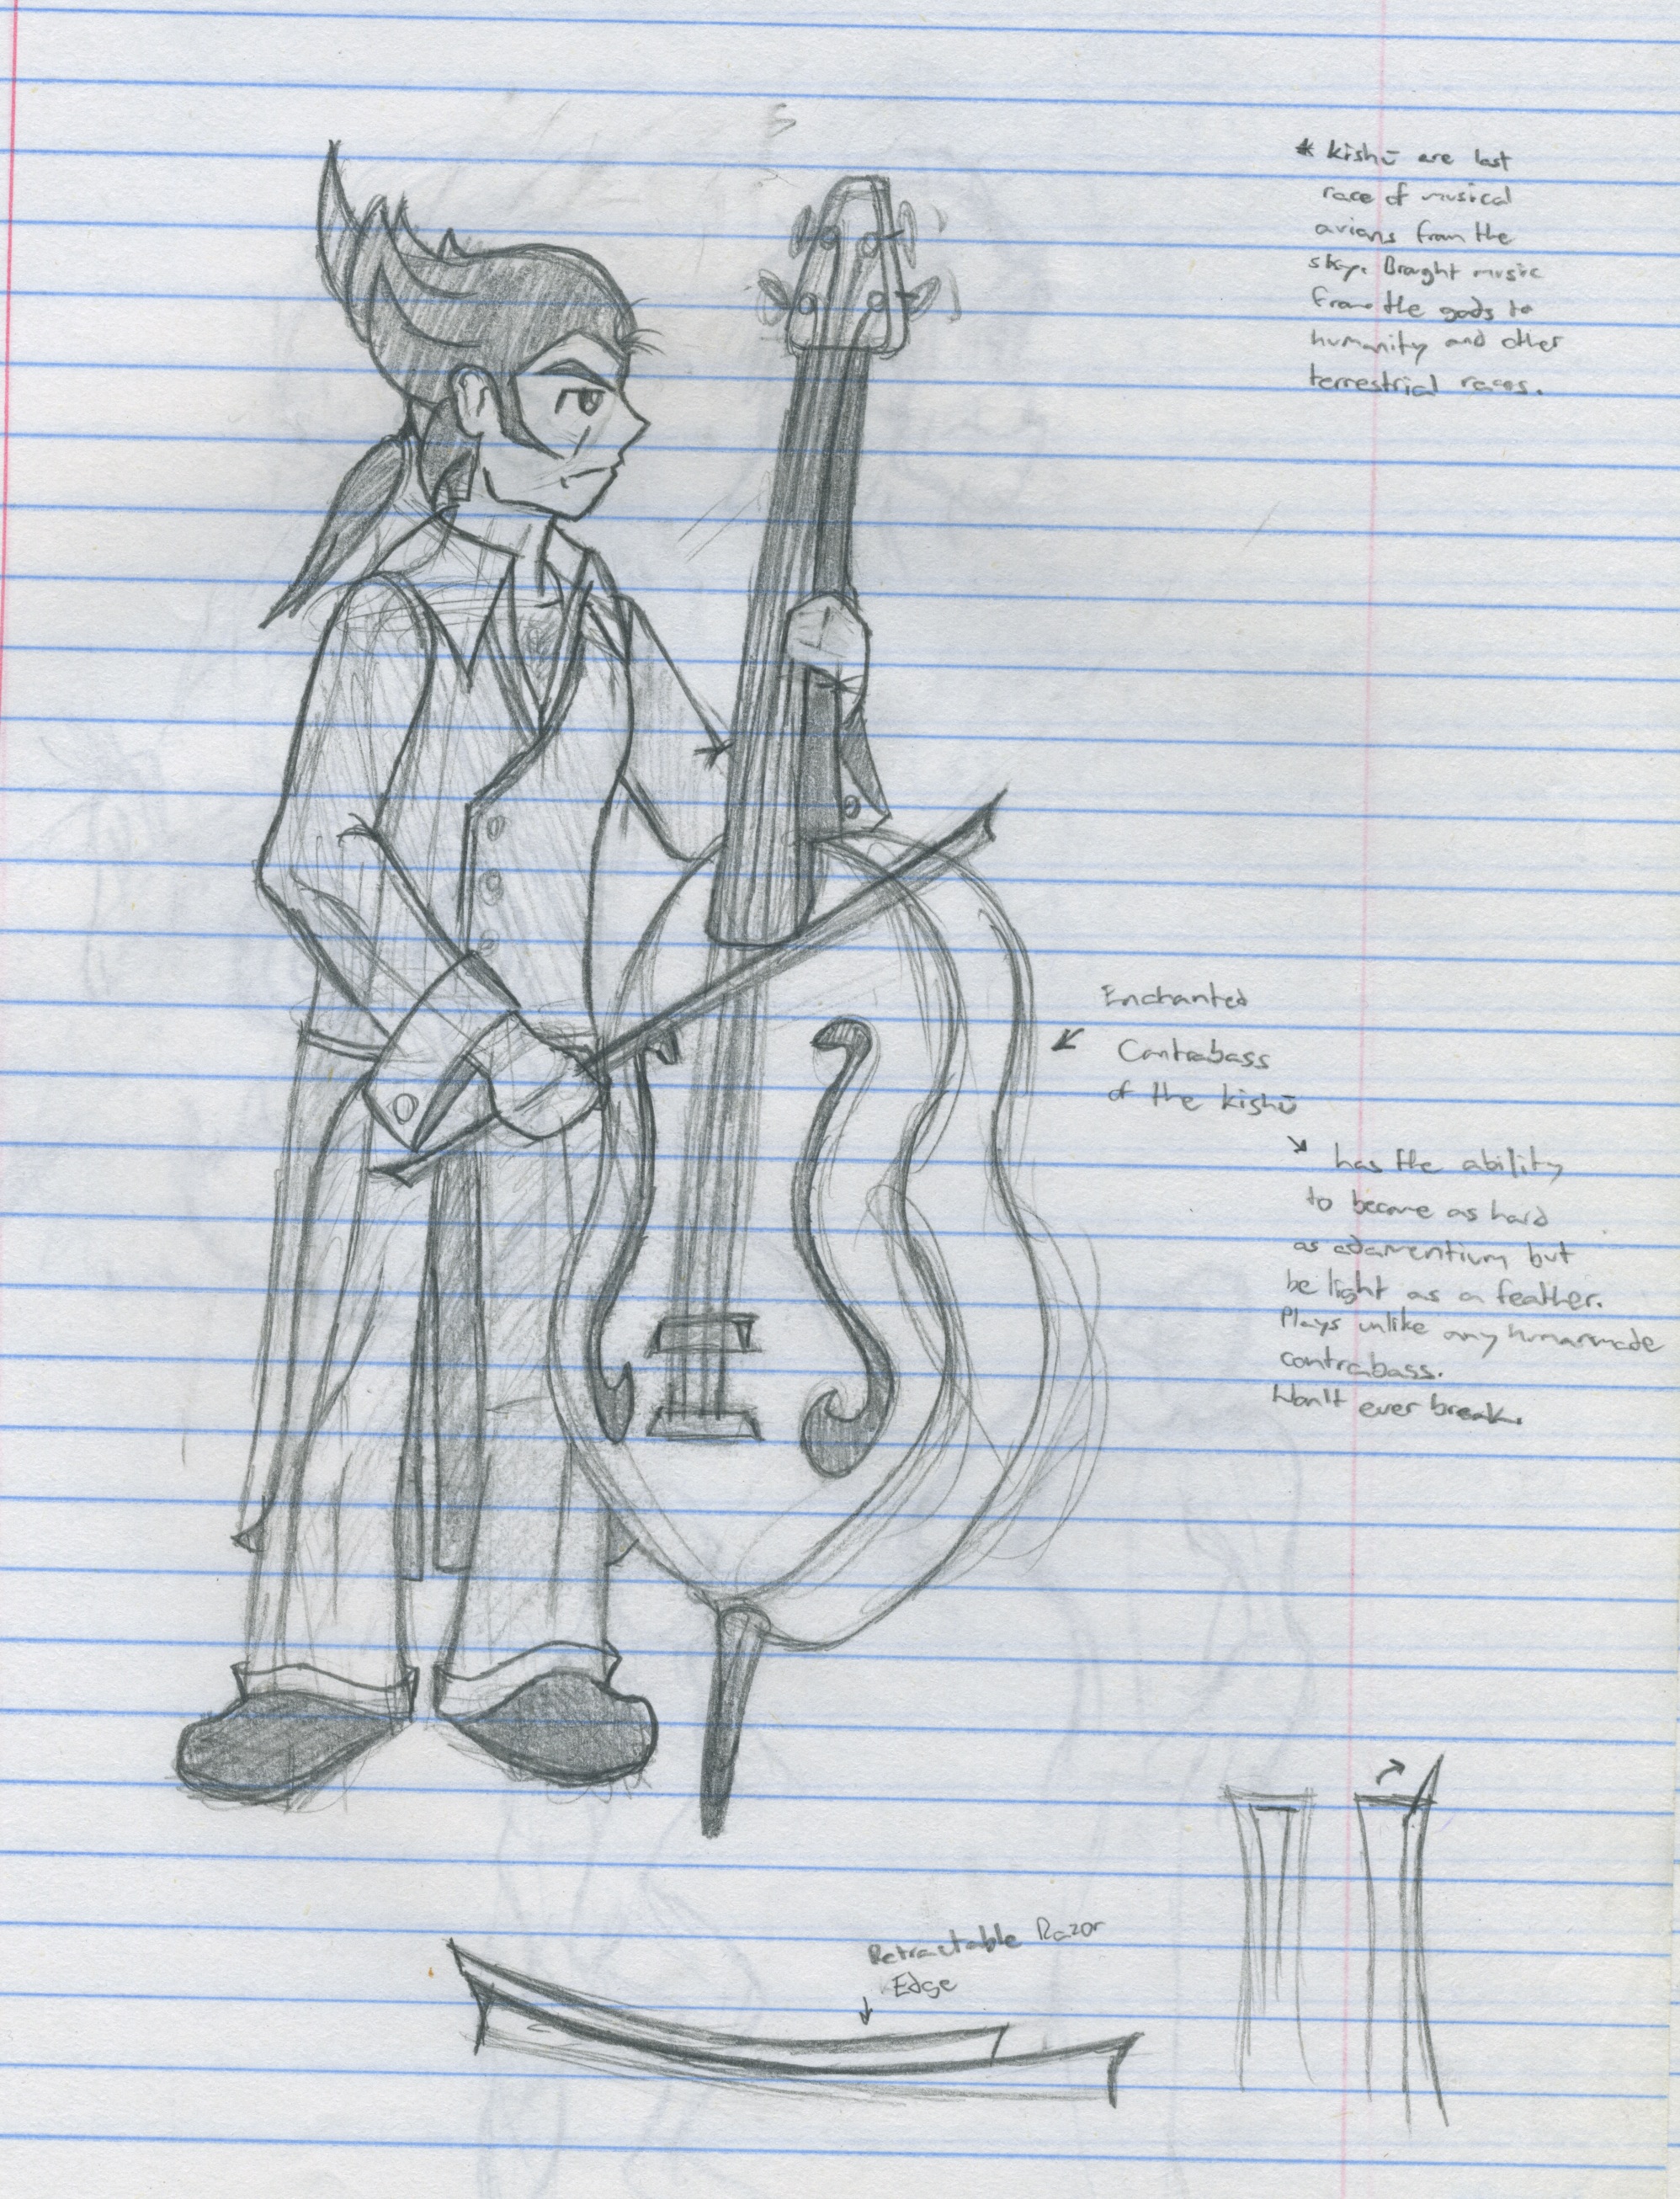 * kishū are last
race of musical
avians from the
sky. Brought music
from the gods to
humanity and other
terrestrial races.
Enchanted
Contrabass
of the kishū
has the ability
to become as hard
as adamentium but
be light as a feather.
Plays unlike any humanmade
contrabass.
Won't ever break.
Retractable Razor
Edge